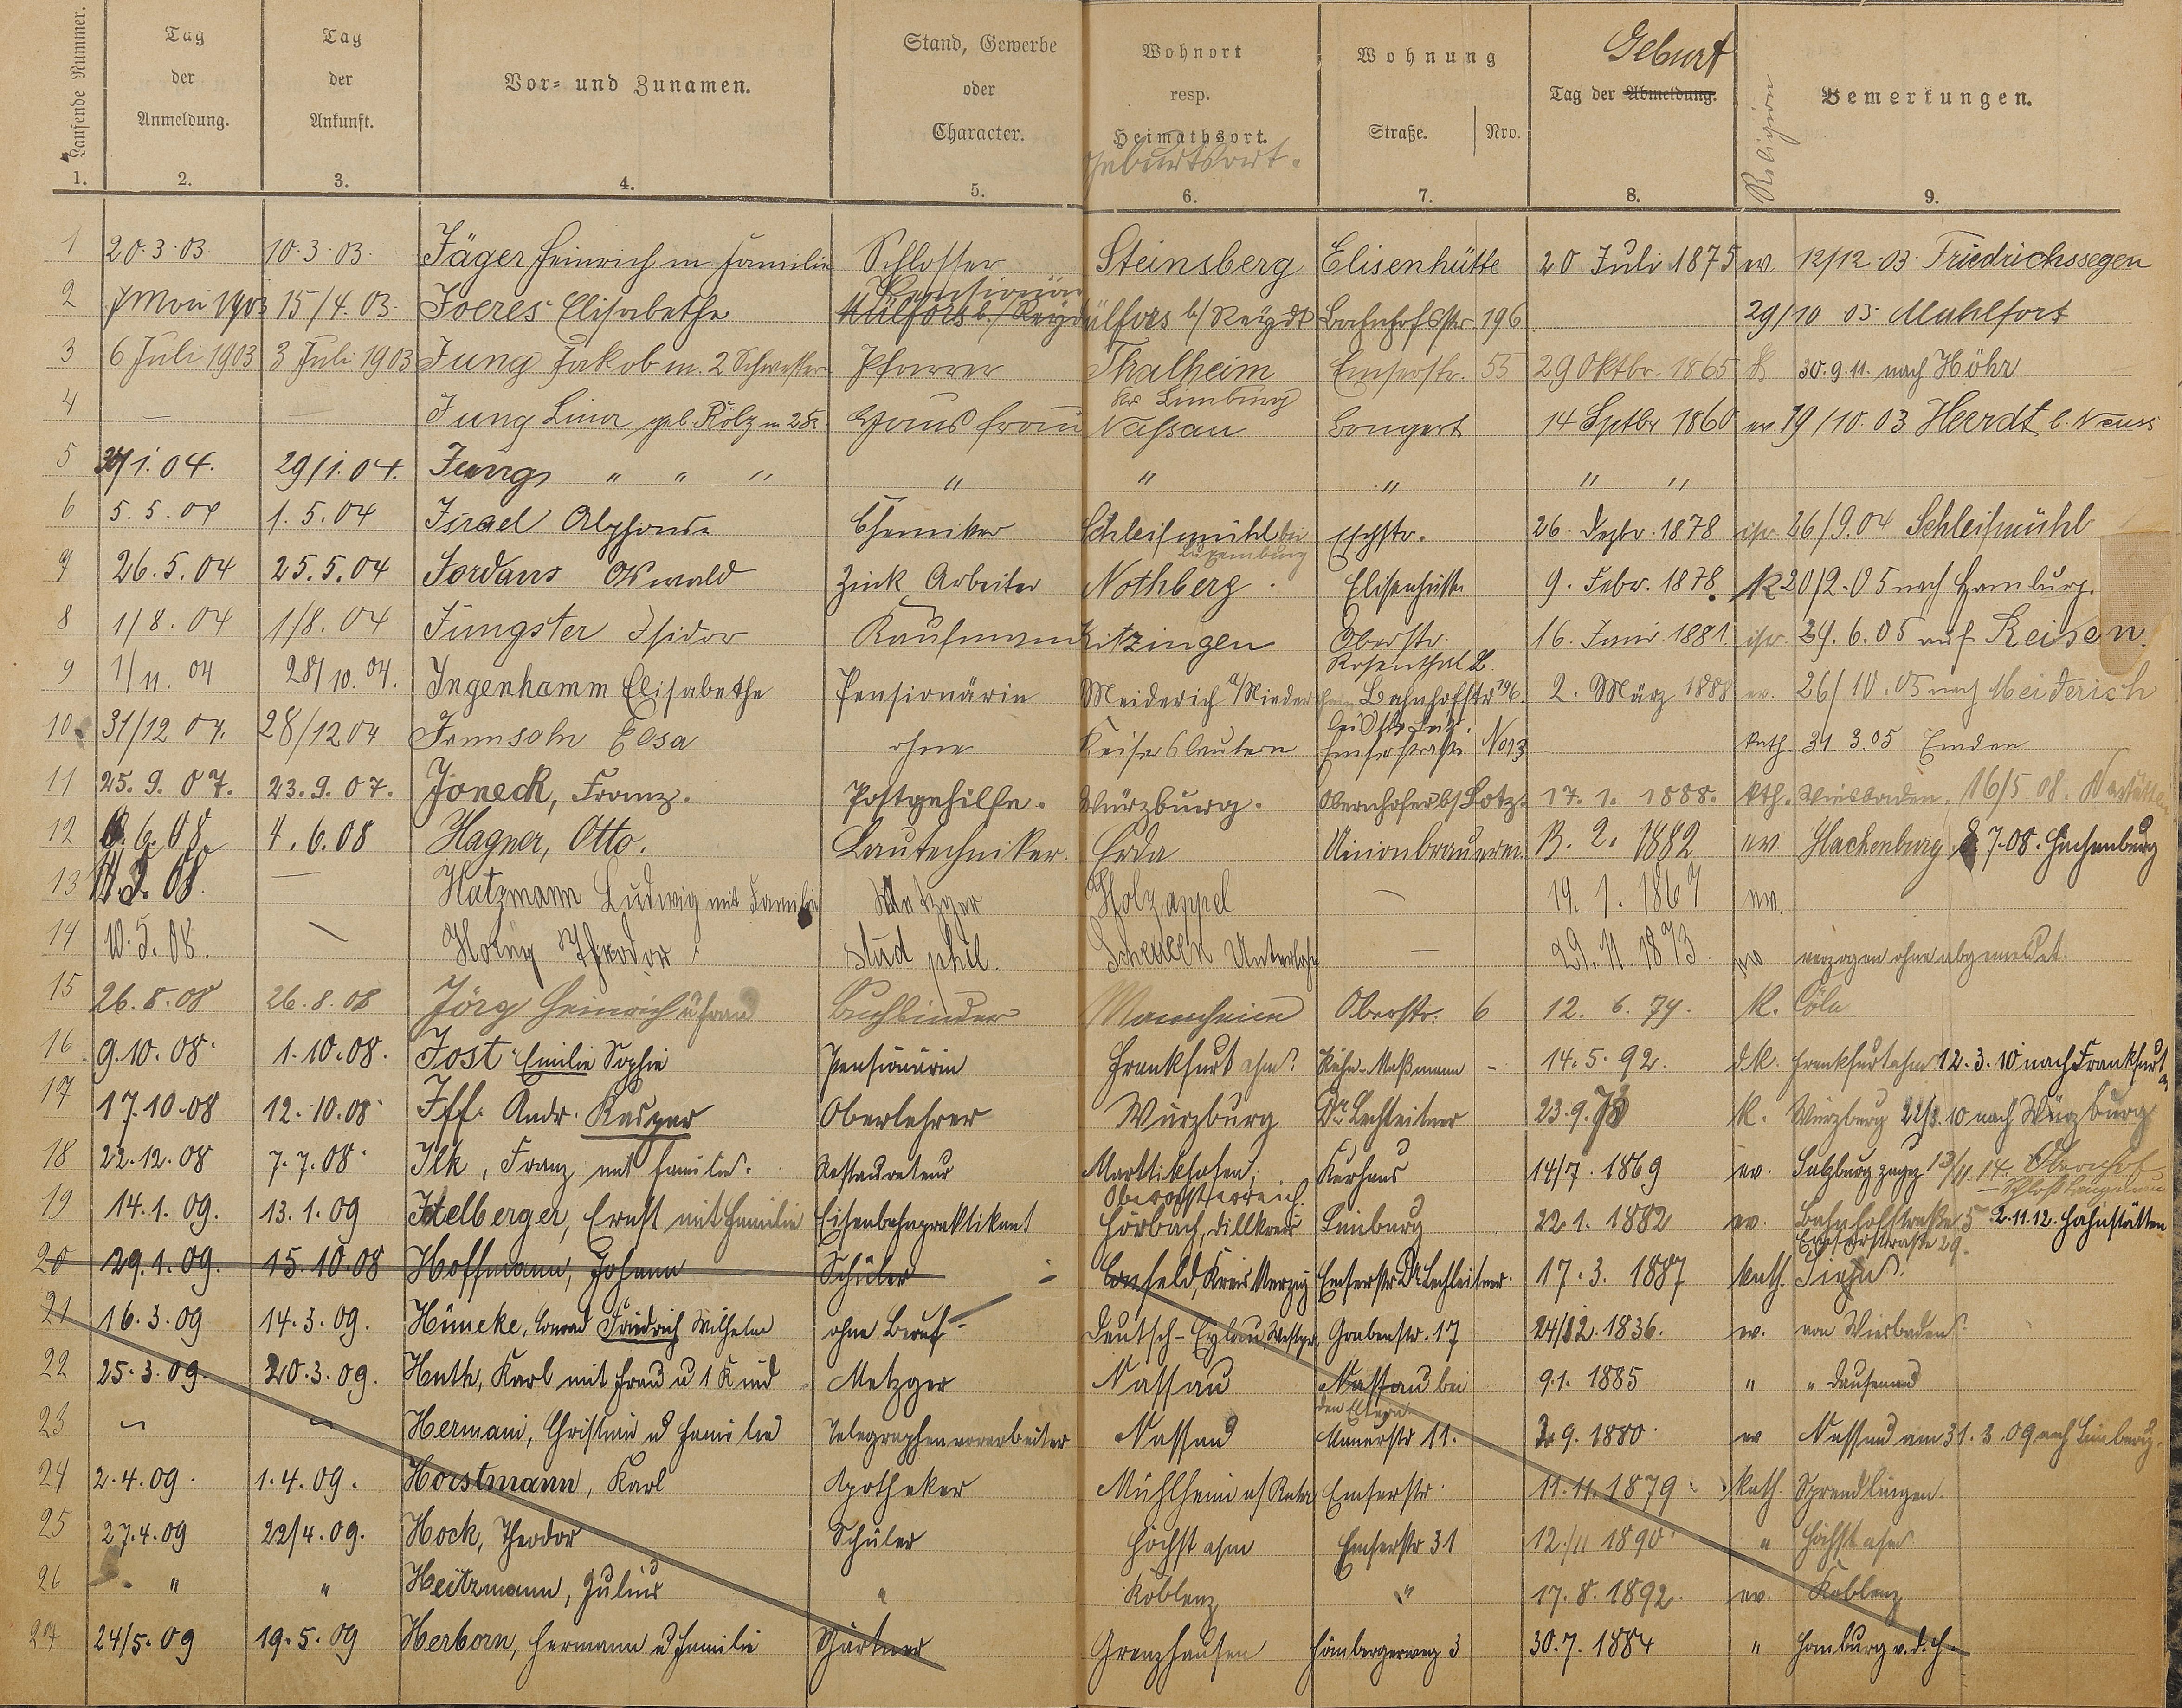 Laufende Nummer. Tag der Anmeldung. Tag der Ankunft. Vor= und Zunamen. Stand, Gewerbe oder Character. Wohnort resp. Heimathsort. Geburtsort. Wohnung Straße. Nro. Geburt Tag der Abmeldung. Religion Bemerkungen.
1. 2. 3. 4. 5. 6. 7. 8. 9.
1 20.3.03. 10.3.03. Jäger Heinrich m. Familie Schlosser Steinsberg Elisenhütte 20 Juli 1875 ev. 12/12.03. Friedrichssegen
2 7 Mai 1903 15/4.03. Joeres Elisabethe Pensionärin Mülfors b/ Reydt Bahnhofstr 196 29/10 03 Mühlfort
3 6 Juli 1903 3 Juli 1903 Jung Jakob m. 2 Schwestern Pfarrer Thalheim Kr Limburg Emserstr. 55 29 Oktbr. 1865 k 30.9.11. nach Höhr
4 — — Jung Lina geb. Kölz m 2 K. Hausfrau Nassau Bongert 14 Septbr 1860 ev. 19/10.03 Heerdt b. Neuss
5 30/1.04. 29/1.04. Jungs " " " " " " " "
6 5.5.04 1.5.04 Israel Alphonse Chemiker Schleifmühl bei Luxemburg 26. Dezbr. 1878 isr. 26/9.04 Schleifmühl
7 26.5.04 25.5.04 Jordans Oswald Zink Arbeiter Nothberg. Elisenhütte 9. Febr. 1878. K 20/2.05 nach Hamburg.
8 1/8.04 1/8.04 Jüngster Isidor Kaufmann Kitzingen Oberstr. Rosenthal L. 16. Juni 1881. isr. 29.6.05 auf Reisen.
9 1/11.04 28/10.04. Ingenhamm Elisabethe Pensionärin Meiderich a/Niederrhein Bahnhofstr 196. 2. März 1888 ev. 26/10.05 nach Meiderich
10. 31/12 04. 28/12 04 Isennsohn Elsa ohne Keiserslautern Emserstraße No 13 kath. 31 3.05 Emden
11 25.9.07. 23.9.07. Joneck, Franz. Postgehilfe. Würzburg. Obernhofer b/Lotz. 17.1.1888. kth. Wiesbaden. 16/5 08. Nastätten
12 6.6.08. 4.6.08 Hagner, Otto. Bautechniker. Erda Unionbrauerei. 13.2.1882 ev. Hachenburg 8 7.08. Hachenburg
13 14.5.08. — Hatzmann Ludwig mit Familie Metzger Holzappel — 19.1.1867 ev.
14 10.5.08. — Theodor stud phil. Scheuern — 29.11.1873. verzogen ohne abgemeldet.
15 26.8.08 26.8.08 Jörg Heinrich u Frau Buchbinder Mannheim Oberstr. 6 12.6.79. K. Cöln
16. 9.10.08. 1.10.08. Jost Emilie Sophie Pensionärin Frankfurt a/m. Kühn-Maßmann - 14.5.92. d.k. Frankfurt a/m 12.3.10 nach Frankfurt a
17 17.10.08 12.10.08. Iff. Andr. Kaspar Oberlehrer Würzburg Dr. Lechleitner 23.9.78 K. Würzburg 22/3.10 nach Würzburg
18 22.12.08 7.7.08. Ilk, Franz mit Familie. Restaurateur Marktikhofen, Oberösterreich Kurhaus 14/7.1869 ev. Salzburg 13/11.14. Obernhof Schloß Langenau
19 14.1.09. 13.1.09 Istelberger, Ernst mit Familie Eisenbahnpraktikant Hörbach, Dillkreis Limburg 22.1.1882 ev. Bahnhofstraße 5 2.11.12. Hahnstätten Emserstrasse 29.
20 29.1.09. 15.10.08 Hoffmann, Johann Schüler Lonfeld, Kreis Merzig Emserstr Dr Lechleitner. 17.3.1887 kath.
21 16.3.09 14.3.09. Hümeke, Conrad Friedrich Wilhelm ohne Beruf Deutsch-Eylau Westpr. Grabenstr. 17 24/12.1836. ev. von Wiesbaden.
22 25.3.09. 20.3.09. Huth, Karl mit Frau u 1 Kind Metzger Nassau Nassau bei den Eltern 9.1.1885 " " Dausenau
23 — — Hermani, Christian u Familie Telegraphenvorarbeiter Nassau Mauerstr 11. 3.9.1880. ev Nassau am 31.3.09 nach Limburg.
24 2.4.09. 1.4.09. Horstmann, Karl Apotheker Mühlheim a/Ruhr Emserstr. 11.11.1879. kath. Sprendlingen.
25 27.4.09 22/4.09. Hock, Theodor Schüler Höchst a/m Emserstr 31 12./11 1890. " Höchst a/m
26 " " Heitzmann, Julius " Koblenz " 17.8.1892. ev. Koblenz
27 24/5.09 19.5.09 Herborn, Hermann u Familie Gärtner Grenzhausen Hömbergerweg 3 30.7.1884 " Homburg v.d.H.